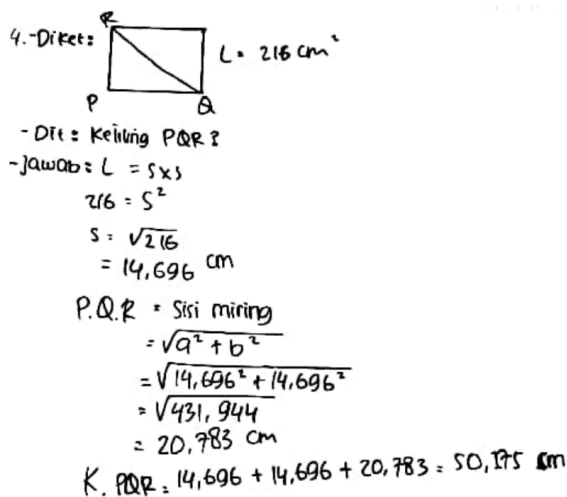 R
4.-Diket:
L = 216 cm²
P
Q
- Dit: Keliling PQR?
- Jawab: L = s x s
216 = S²
S = √216
= 14,696 cm
P.Q.R = Sisi miring
= √a² + b²
= √14,696² + 14,696²
= √431,944
= 20,783 cm
K. PQR = 14,696 + 14,696 + 20,783 = 50,175 cm